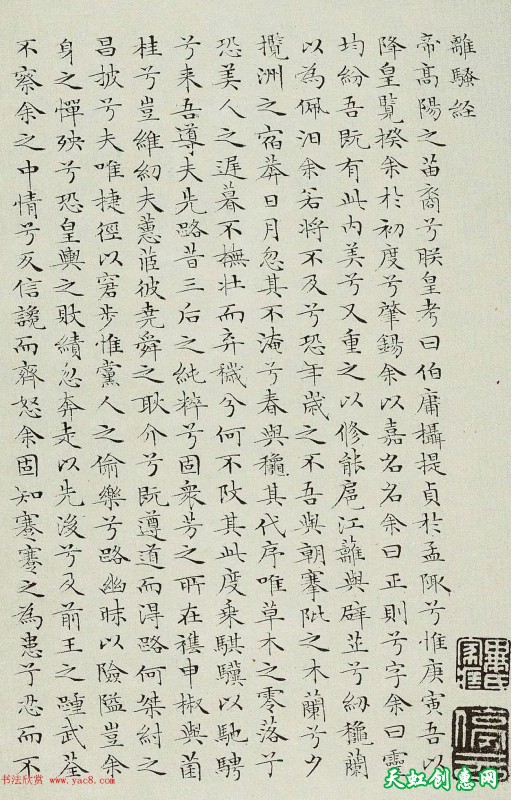 離騷経
帝高陽之苗裔兮朕皇考曰伯庸攝提貞於孟陬兮惟庚寅吾以
降皇覽揆余於初度兮肇錫余以嘉名名余曰正則兮字余曰靈
均紛吾既有此内美兮又重之以修能扈江蘺與辟芷兮紉穐蘭
以為佩汩余若將不及兮恐年歲之不吾與朝搴阰之木蘭兮夕
攬洲之宿莽日月忽其不淹兮春與穐其代序唯草木之零落兮
恐美人之遲暮不撫壯而弃穢兮何不改其此度乘騏驥以馳騁
兮来吾導夫先路昔三后之純粹兮固衆芳之所在襍申椒與菌
桂兮豈維紉夫蕙茝彼堯舜之耿介兮既遵道而得路何桀紂之
昌披兮夫唯捷徑以窘步惟黨人之偷樂兮路幽昧以險隘豈余
身之憚殃兮恐皇輿之敗績忽奔走以先後兮及前王之踵武荃
不察余之中情兮反信讒而齊怒余固知謇謇之為患兮恐而不
书法欣赏 www.yac8.com
天虹创意网